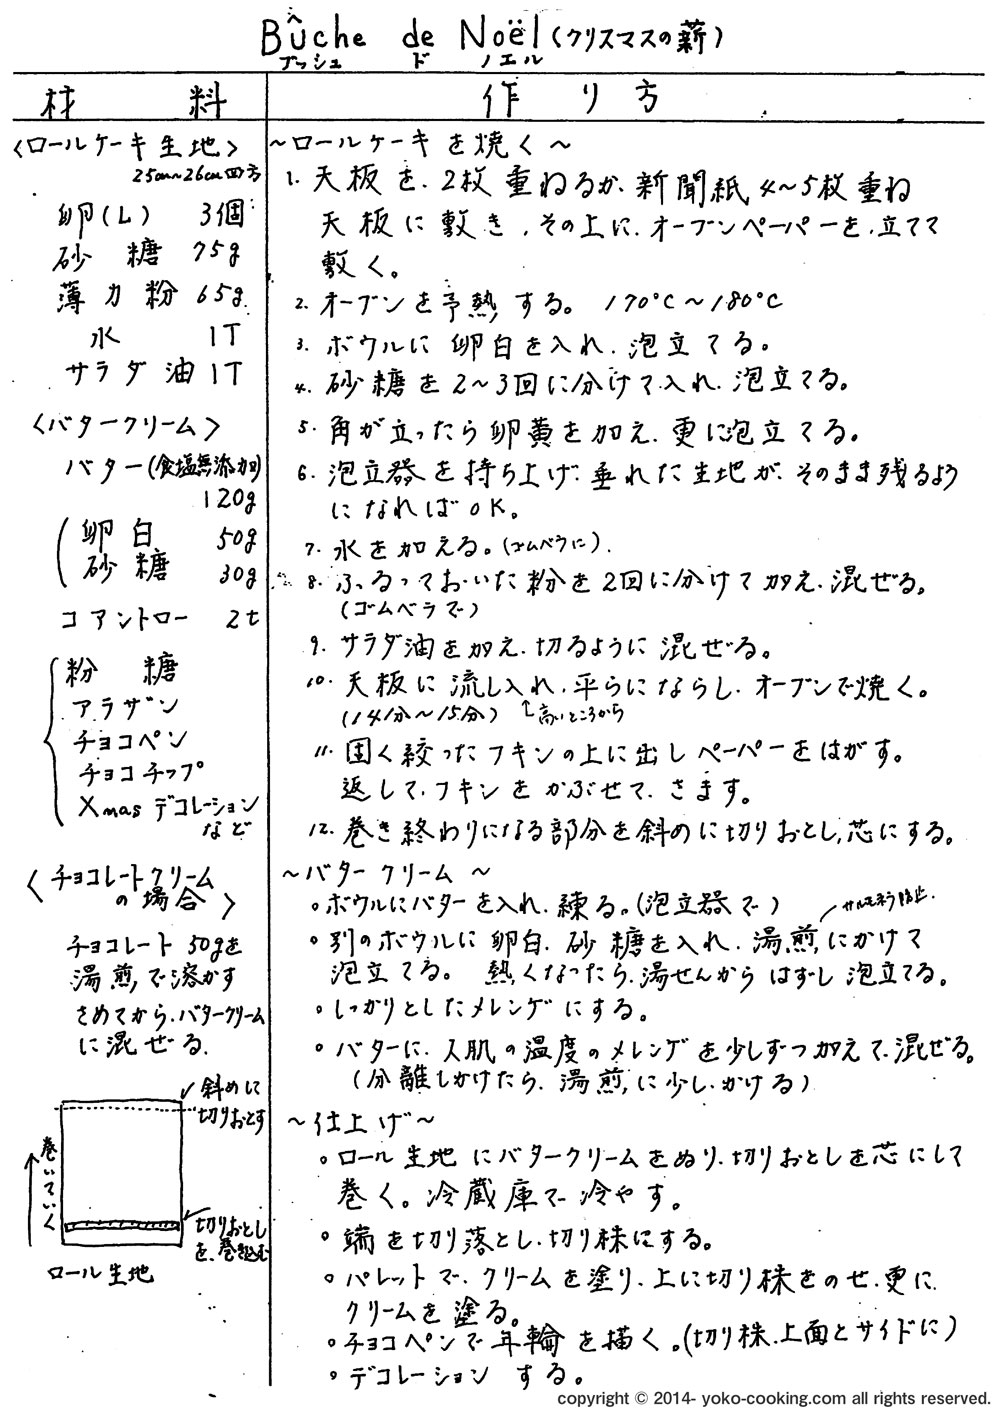 Bûche de Noël (クリスマスの薪)
ブッシュ ド ノエル
材 料
作 り 方
〈ロールケーキ生地〉
25cm~26cm四方
卵(L) 3個
砂 糖 75g
薄 力 粉 65g
水 1T
サラダ油 1T
〈バタークリーム〉
バター(食塩無添加)
120g
卵白 50g
砂糖 30g
コアントロー 2t
粉 糖
アラザン
チョコペン
チョコチップ
Xmas デコレーション
など
〈チョコレートクリーム
の場合〉
チョコレート 50gを
湯煎で溶かす
さめてから、バタークリーム
に混ぜる.
斜めに
切りおとす
巻いていく
切りおとし
を、巻き込む
ロール生地
~ロールケーキを焼く~
1. 天板を、2枚重ねるか、新聞紙4~5枚重ね
天板に敷き、その上に、オーブンペーパーを、立てて
敷く。
2. オーブンを予熱する。 170°C~180°C
3. ボウルに卵白を入れ、泡立てる。
4. 砂糖を2~3回に分けて入れ、泡立てる。
5. 角が立ったら卵黄を加え、更に泡立てる。
6. 泡立器を持ち上げ、垂れた生地が、そのまま残るよう
になればOK。
7. 水を加える。(ゴムベラに).
8. ふるっておいた粉を2回に分けて加え、混ぜる。
(ゴムベラで)
9. サラダ油を加え、切るように混ぜる。
10. 天板に流し入れ、平らにならし、オーブンで焼く。
(14分~15分) ↑高いところから
11. 固く絞ったフキンの上に出しペーパーをはがす。
返して、フキンをかぶせて、さます。
12. 巻き終わりになる部分を斜めに切りおとし、芯にする。
~バタークリーム~
○ボウルにバターを入れ、練る。(泡立器で)
○別のボウルに卵白、砂糖を入れ、湯煎にかけて
泡立てる。 熱くなったら、湯せんからはずし泡立てる。
○しっかりとしたメレンゲにする。
○バターに、人肌の温度のメレンゲを少しずつ加えて、混ぜる。
(分離しかけたら、湯煎に少しかける)
~仕上げ~
○ロール生地にバタークリームをぬり、切りおとしを芯にして
巻く。冷蔵庫で冷やす。
○端を切り落とし、切り株にする。
○パレットで、クリームを塗り、上に切り株をのせ、更に
クリームを塗る。
○チョコペンで年輪を描く。(切り株、上面とサイドに)
○デコレーションする。
copyright © 2014- yoko-cooking.com all rights reserved.